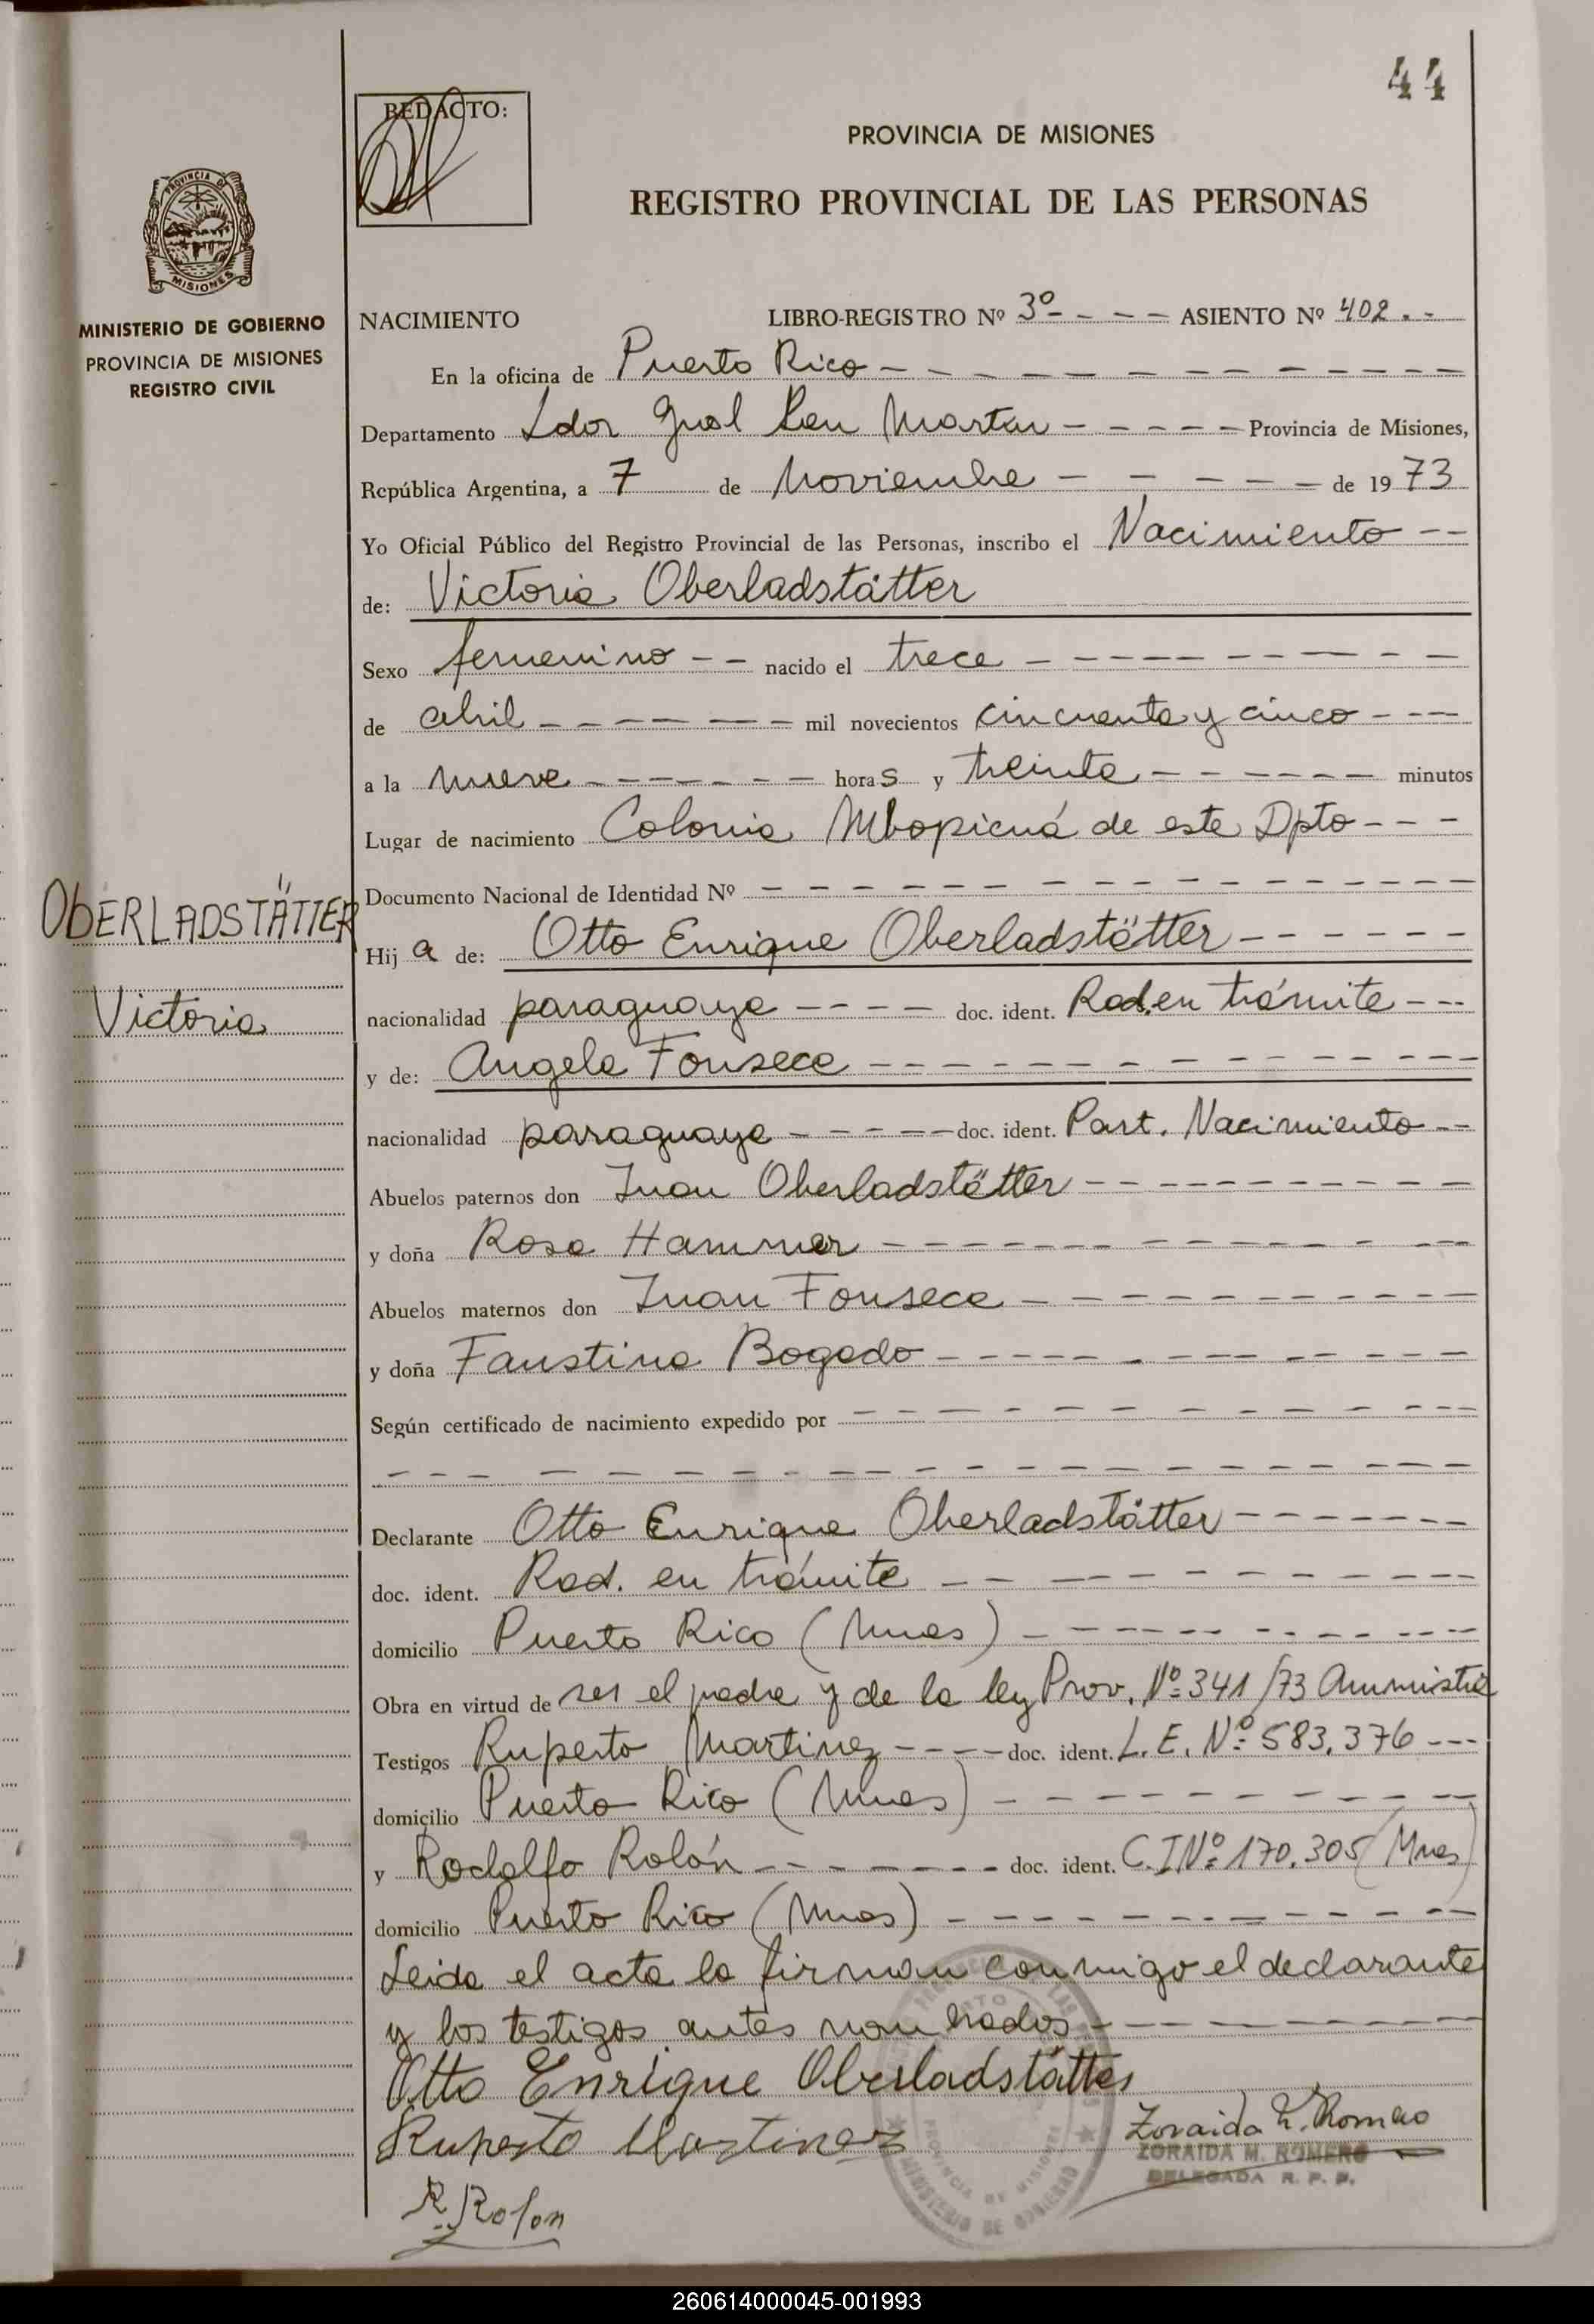 44
REDACTO:
PROVINCIA DE MISIONES
REGISTRO PROVINCIAL DE LAS PERSONAS
PROVINCIA D
MISIONES
MINISTERIO DE GOBIERNO
PROVINCIA DE MISIONES
REGISTRO CIVIL
NACIMIENTO LIBRO-REGISTRO Nº 3º - - - - ASIENTO Nº 402 . -
En la oficina de Puerto Rico
Departamento Ldor Gral San Martin Provincia de Misiones,
República Argentina, a 7 de Noviembre de 1973
Yo Oficial Público del Registro Provincial de las Personas, inscribo el Nacimiento
de: Victoria Oberladstätter
Sexo femenino nacido el trece
de abril mil novecientos cincuenta y cinco
a la nueve horas y treinta minutos
Lugar de nacimiento Colonia Mbopicuá de este Dpto
Documento Nacional de Identidad Nº
OBERLADSTÄTTER
Victoria
Hija de: Otto Enrique Oberladstätter
nacionalidad paraguaya doc. ident. Rad. en trámite
y de: Angela Fonseca
nacionalidad paraguaya doc. ident. Part. Nacimiento
Abuelos paternos don Juan Oberladstätter
y doña Rosa Hammer
Abuelos maternos don Juan Fonseca
y doña Faustina Bogado
Según certificado de nacimiento expedido por
Declarante Otto Enrique Oberladstätter
doc. ident. Rad. en trámite
domicilio Puerto Rico (Mnes)
Obra en virtud de ser el padre y de la ley Prov. Nº 341/73 Amnistia
Testigos Ruperto Martinez doc. ident. L.E. Nº 583.376
domicilio Puerto Rico (Mnes)
y Rodolfo Rolón doc. ident. C.I Nº 170.305 (Mnes)
domicilio Puerto Rico (Mnes)
Leida el acta la firman conmigo el declarante
y los testigos antes nombrados
Otto Enrique Oberladstätter
Ruperto Martinez
Zoraida M. Romero
ZORAIDA M. ROMERO
DELEGADA R. P. P.
R. Rolon
PROVINCIA DE MISIONES
MINISTERIO DE GOBIERNO
260614000045-001993